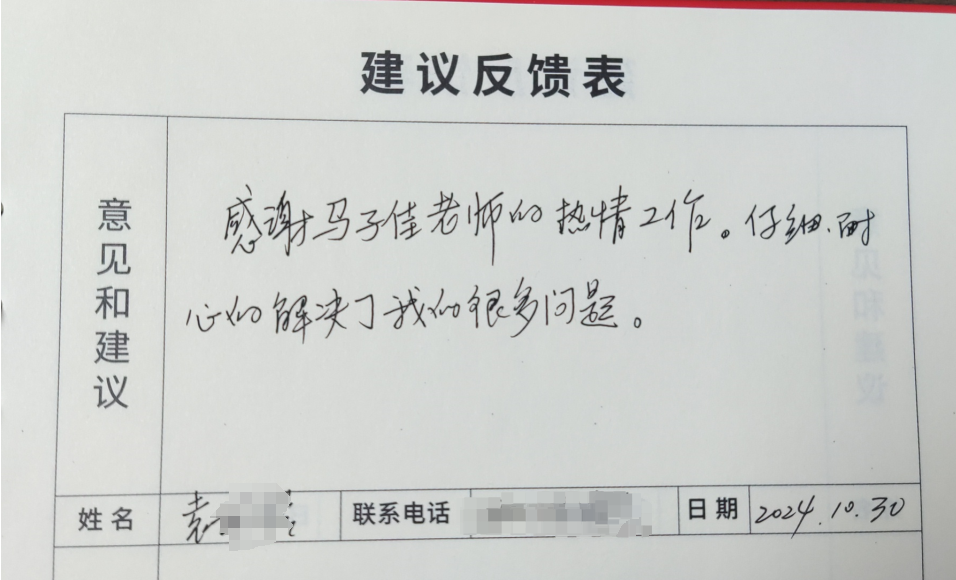 建议反馈表
意见和建议
感谢马子佳老师的热情工作。仔细、耐
心的解决了我的很多问题。
姓名 袁 联系电话 日期 2024.10.30